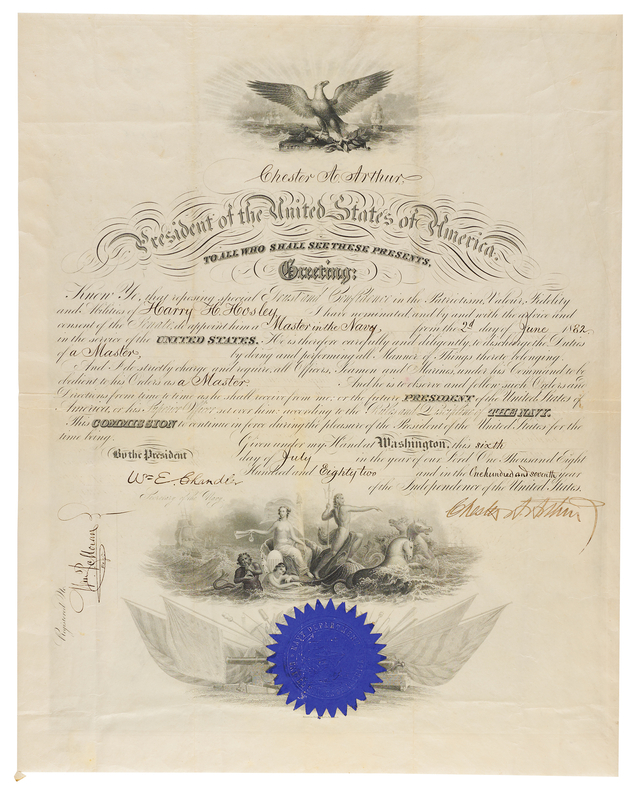 Chester A Arthur
President of the United States of America.
TO ALL WHO SHALL SEE THESE PRESENTS,
Greeting:
Know Ye, that reposing special Trust and Confidence in the Patriotism, Valour, Fidelity
and Abilities of Harry H. Hosley, I have nominated and by and with the advice and
consent of the Senate, do appoint him a Master in the Navy, from the 2d day of June, 1882
in the service of the UNITED STATES. He is therefore carefully and diligently to discharge the Duties
of a Master, by doing and performing all Manner of Things thereto belonging.
And I do strictly charge and require all Officers, Seamen and Marines, under his Command to be
obedient to his Orders as a Master. And he is to observe and follow such Orders and
Directions from time to time as he shall receive from me, or the future PRESIDENT of the United States of
America, or his Superior Officer set over him, according to the Rules and Discipline of THE NAVY.
This COMMISSION to continue in force during the pleasure of the President of the United States for the
time being.
Given under my Hand at Washington, this sixth
By the President
day of July in the year of our Lord One Thousand Eight
Hundred and Eighty two and in the One hundred and seventh year
of the Independence of the United States.
Wm E Chandler
Secretary of the Navy
Chester A Arthur
Registered No
NAVY DEPARTMENT